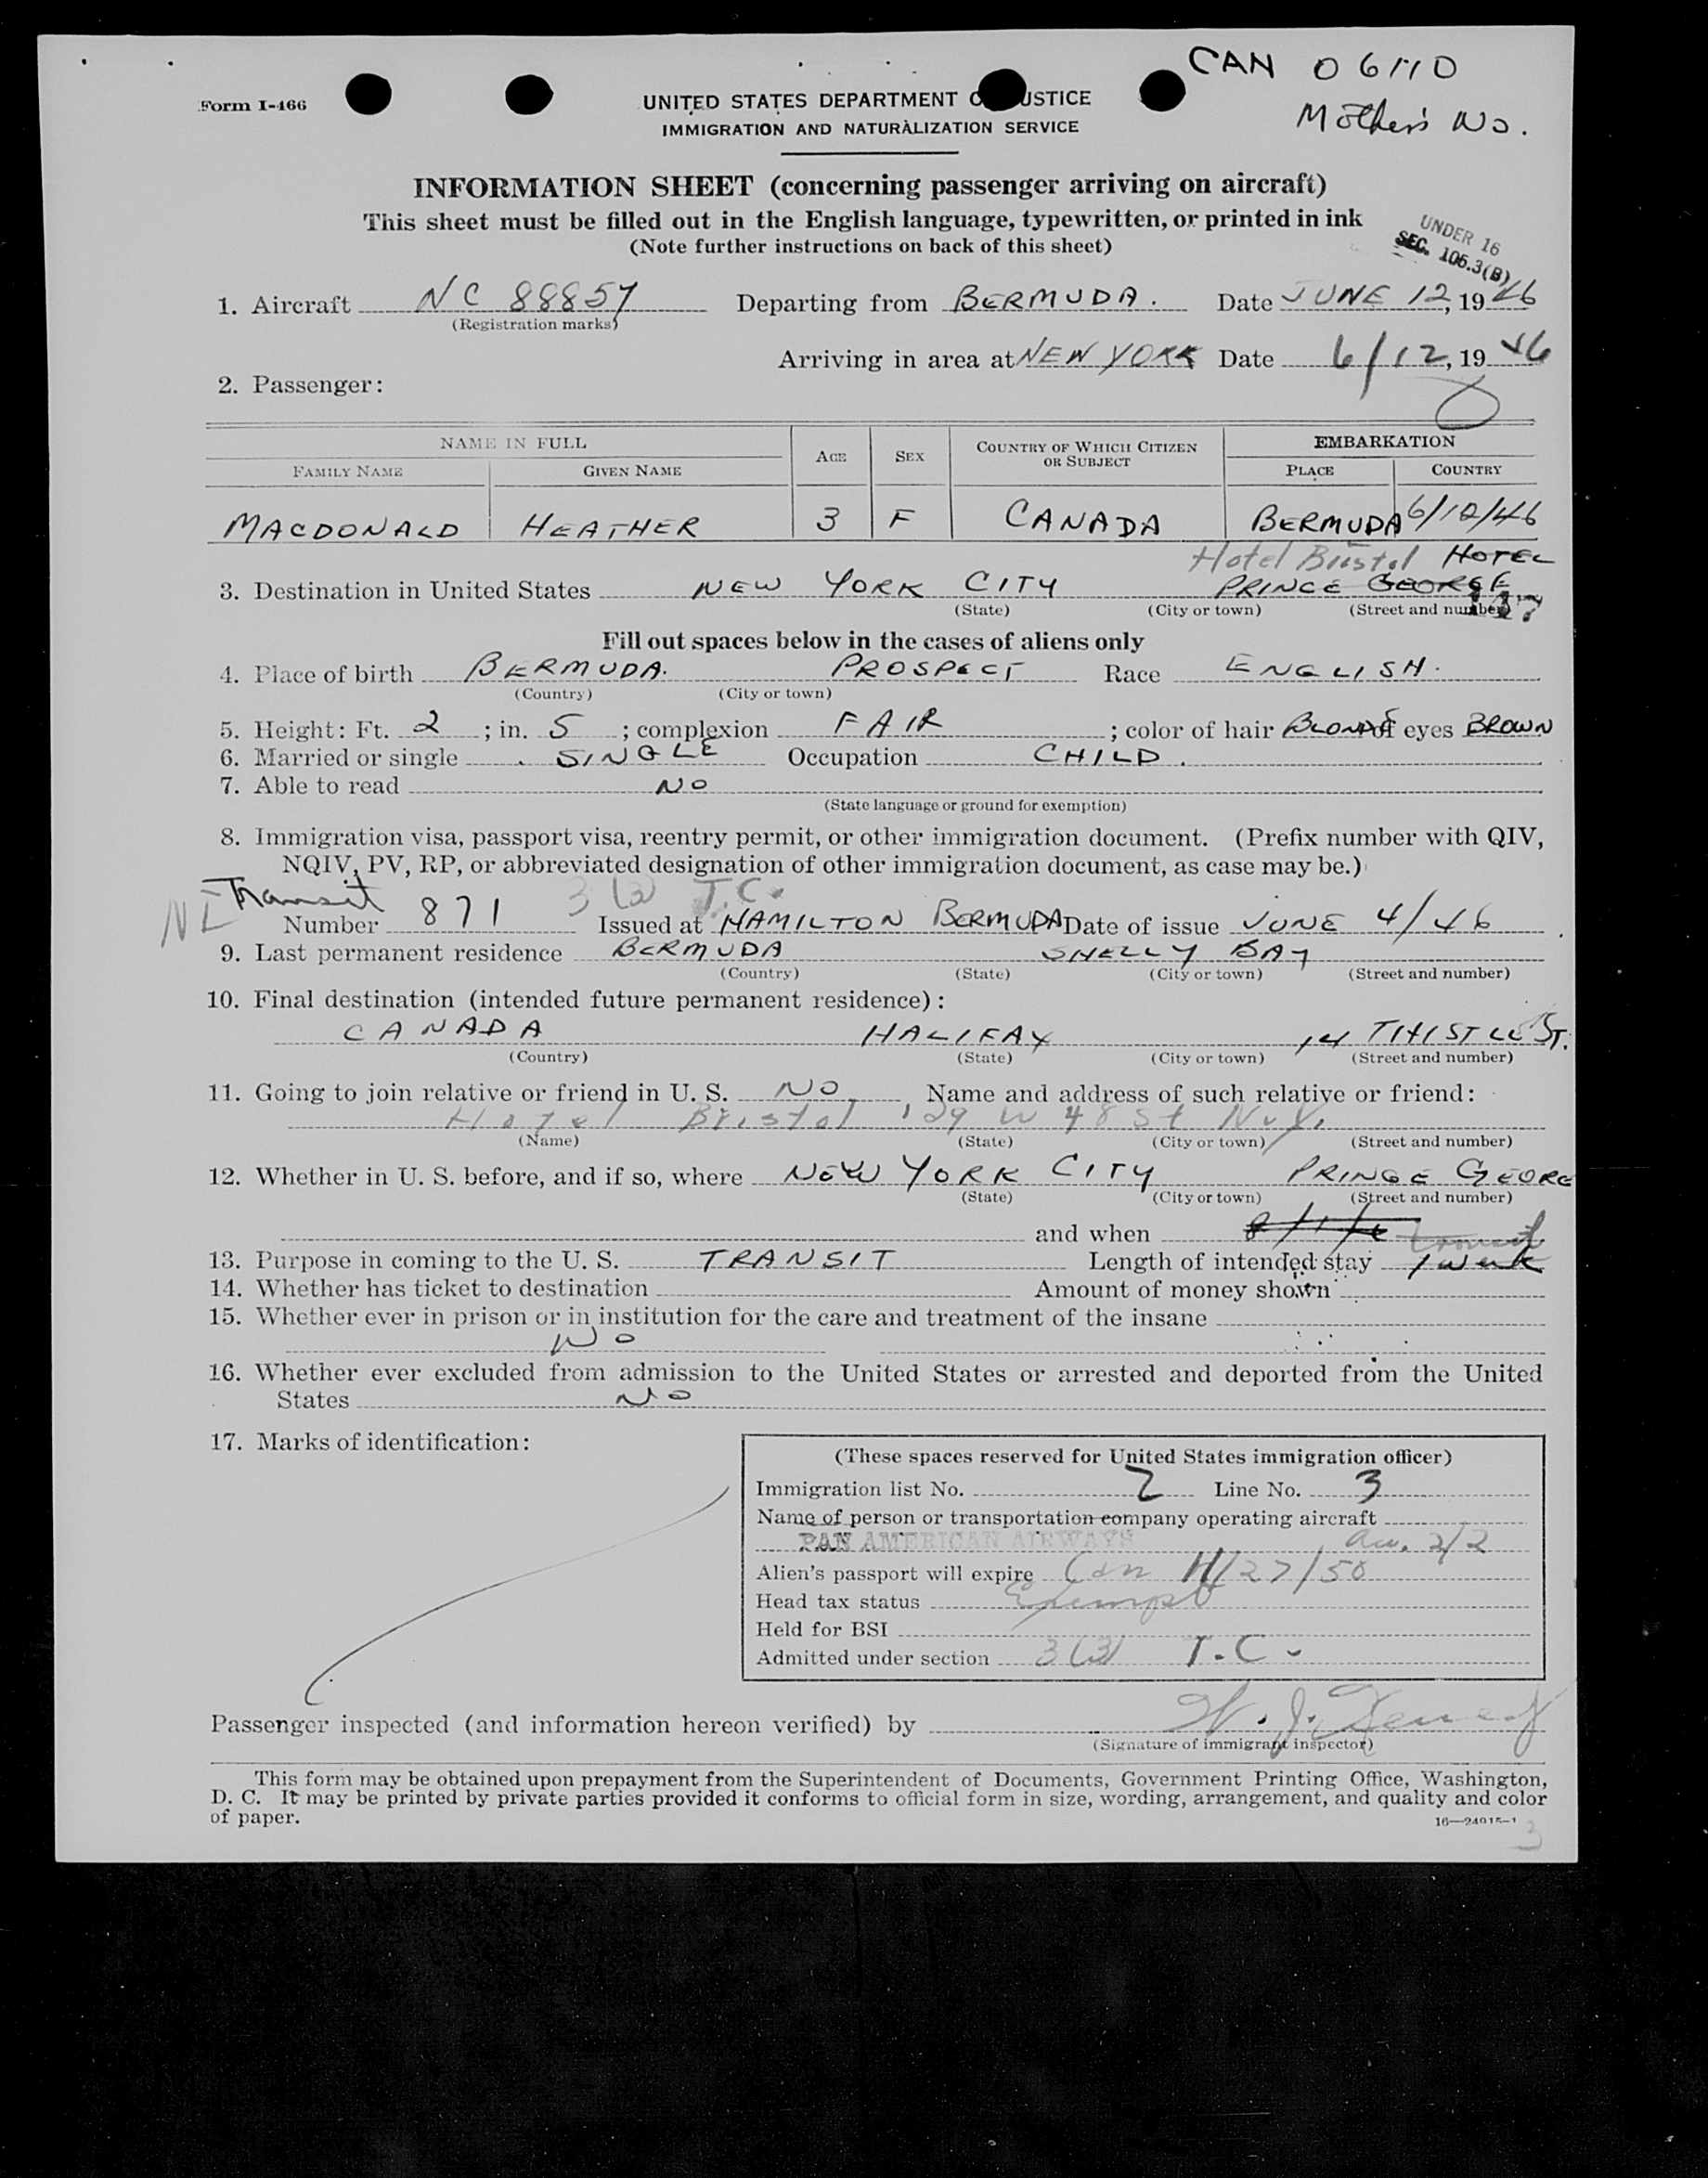 CAN 06110
Mother's No.
Form I-466
UNITED STATES DEPARTMENT O USTICE
IMMIGRATION AND NATURALIZATION SERVICE
INFORMATION SHEET (concerning passenger arriving on aircraft)
This sheet must be filled out in the English language, typewritten, or printed in ink
(Note further instructions on back of this sheet)
UNDER 16
SEC. 106.3(B)
1. Aircraft NC 88857 Departing from BERMUDA. Date JUNE 12, 1946
(Registration marks)
Arriving in area at NEW YORK Date 6/12, 1946
2. Passenger:
NAME IN FULL AGE SEX COUNTRY OF WHICH CITIZEN OR SUBJECT EMBARKATION
FAMILY NAME GIVEN NAME PLACE COUNTRY
MACDONALD HEATHER 3 F CANADA BERMUDA 6/12/46
Hotel Bristol HOTEL
3. Destination in United States NEW YORK CITY PRINCE GEORGE
(State) (City or town) (Street and number)
Fill out spaces below in the cases of aliens only
4. Place of birth BERMUDA. PROSPECT Race ENGLISH.
(Country) (City or town)
5. Height: Ft. 2; in. 5; complexion FAIR; color of hair BLONDE eyes BROWN
6. Married or single SINGLE Occupation CHILD.
7. Able to read NO
(State language or ground for exemption)
8. Immigration visa, passport visa, reentry permit, or other immigration document. (Prefix number with QIV,
NQIV, PV, RP, or abbreviated designation of other immigration document, as case may be.)
Transit 3(3) T.C.
Number 871 Issued at HAMILTON BERMUDA Date of issue JUNE 4/46
9. Last permanent residence BERMUDA SHELLY BAY
(Country) (State) (City or town) (Street and number)
10. Final destination (intended future permanent residence):
CANADA HALIFAX 14 THISTLE ST.
(Country) (State) (City or town) (Street and number)
11. Going to join relative or friend in U. S. NO, Name and address of such relative or friend:
Hotel Bristol 129 W 48 St N.Y.
(Name) (State) (City or town) (Street and number)
12. Whether in U. S. before, and if so, where NEW YORK CITY PRINCE GEORG
(State) (City or town) (Street and number)
and when transit
13. Purpose in coming to the U. S. TRANSIT Length of intended stay 1 week
14. Whether has ticket to destination Amount of money shown
15. Whether ever in prison or in institution for the care and treatment of the insane
NO
16. Whether ever excluded from admission to the United States or arrested and deported from the United
States NO
17. Marks of identification:
(These spaces reserved for United States immigration officer)
Immigration list No. 2 Line No. 3
Name of person or transportation company operating aircraft
PAN AMERICAN AIRWAYS 2/2
Alien's passport will expire Can 11/27/50
Head tax status Exempt
Held for BSI
Admitted under section 3(3) T.C.
Passenger inspected (and information hereon verified) by W. J.
(Signature of immigrant inspector)
This form may be obtained upon prepayment from the Superintendent of Documents, Government Printing Office, Washington,
D. C. It may be printed by private parties provided it conforms to official form in size, wording, arrangement, and quality and color
of paper.
16—24015-1
3